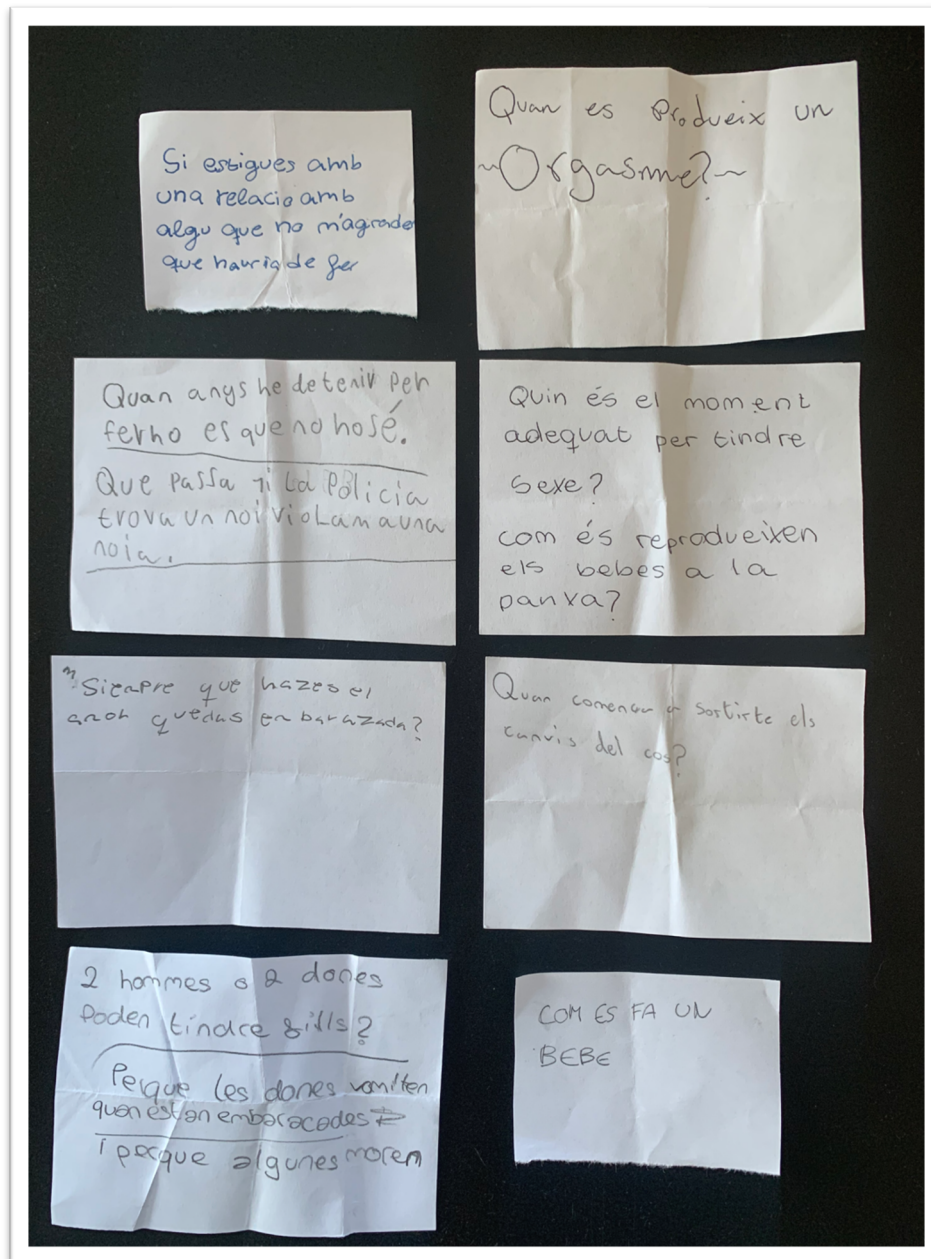 Si estigues amb
una relacio amb
algu que no m'agrades
que hauria de fer
Quan es Produeix un
~Orgasme?~
Quan anys he de tenir per
ferho es que no hosé.
Que passa si La Policia
trova un noi violam a una
noia.
Quin és el moment
adequat per tindre
sexe?
com és reprodueixen
els bebes a la
panxa?
"Siempre que hazes el
amor quedas enbarazada?
Quan comencen a sortirte els
canvis del cos?
2 hommes o 2 dones
Poden tindre fills?
Perque les dones vomiten
quan estan embaraçades
i perque algunes moren
COM ES FA UN
BEBE